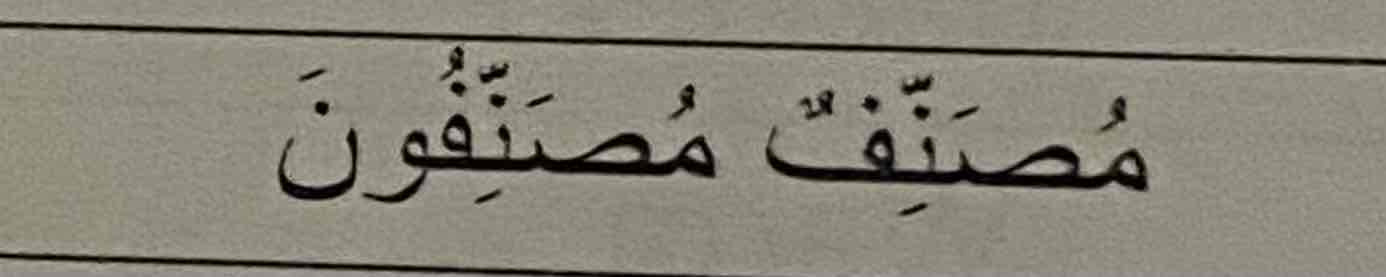 مُصَنِّفٌ مُصَنِّفُونَ